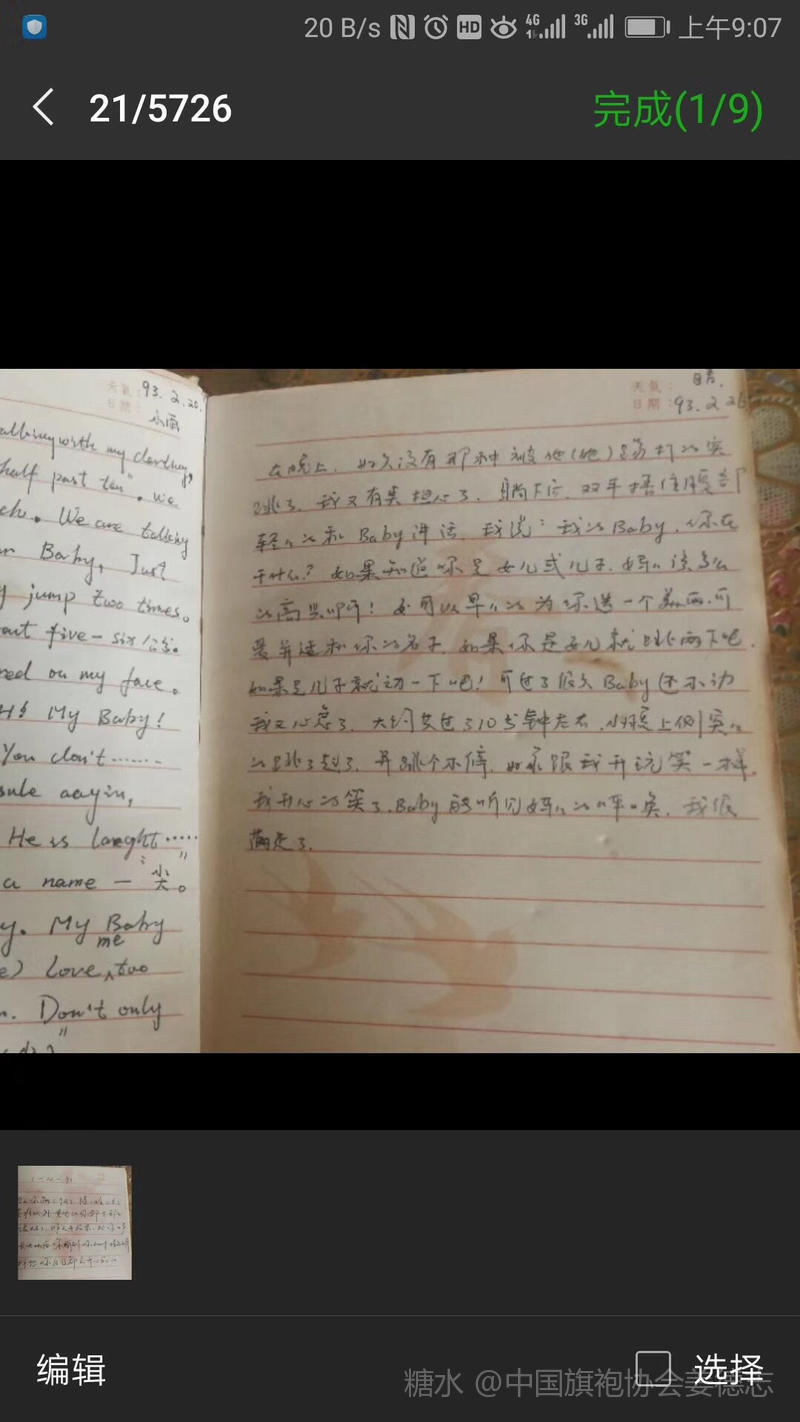 20 B/s HD 4G 3G 上午9:07
21/5726
完成(1/9)
天氣:
日期:
93.2.26.
小雨
talking with my darling,
half past ten". we
We are talking
Baby, Just
jump two times.
five-six 公分.
red on my face.
My Baby!
You don't......
aayin,
He is laught.....
a name — "小夫"。
My Baby
me
love too
Don't only
天氣: 晴.
日期: 93.2.26
在晚上. 好久没有那种被他(她)踢打的实
跳了. 我又有点担心了. 躺下后. 双手捂住腹部
轻々的和Baby讲话. 我说:我的Baby, 你在
干什么? 如果知道你是女儿或儿子. 妈々该多么
的高兴呀! 也可以早々的为你选一个美丽.可
爱并适和你的名子. 如果你是女儿就跳两下吧.
如果是儿子就动一下吧! 可过了很久Baby还不动
我又心急了. 大约又过了10多钟左右. 小腹上侧实々
的跳了起了. 并跳个不停. 好象跟我开玩笑一样.
我开心的笑了. Baby能听见妈々的呼唤. 我很
满足了.
编辑
选择
糖水 @中国旗袍协会姜德志